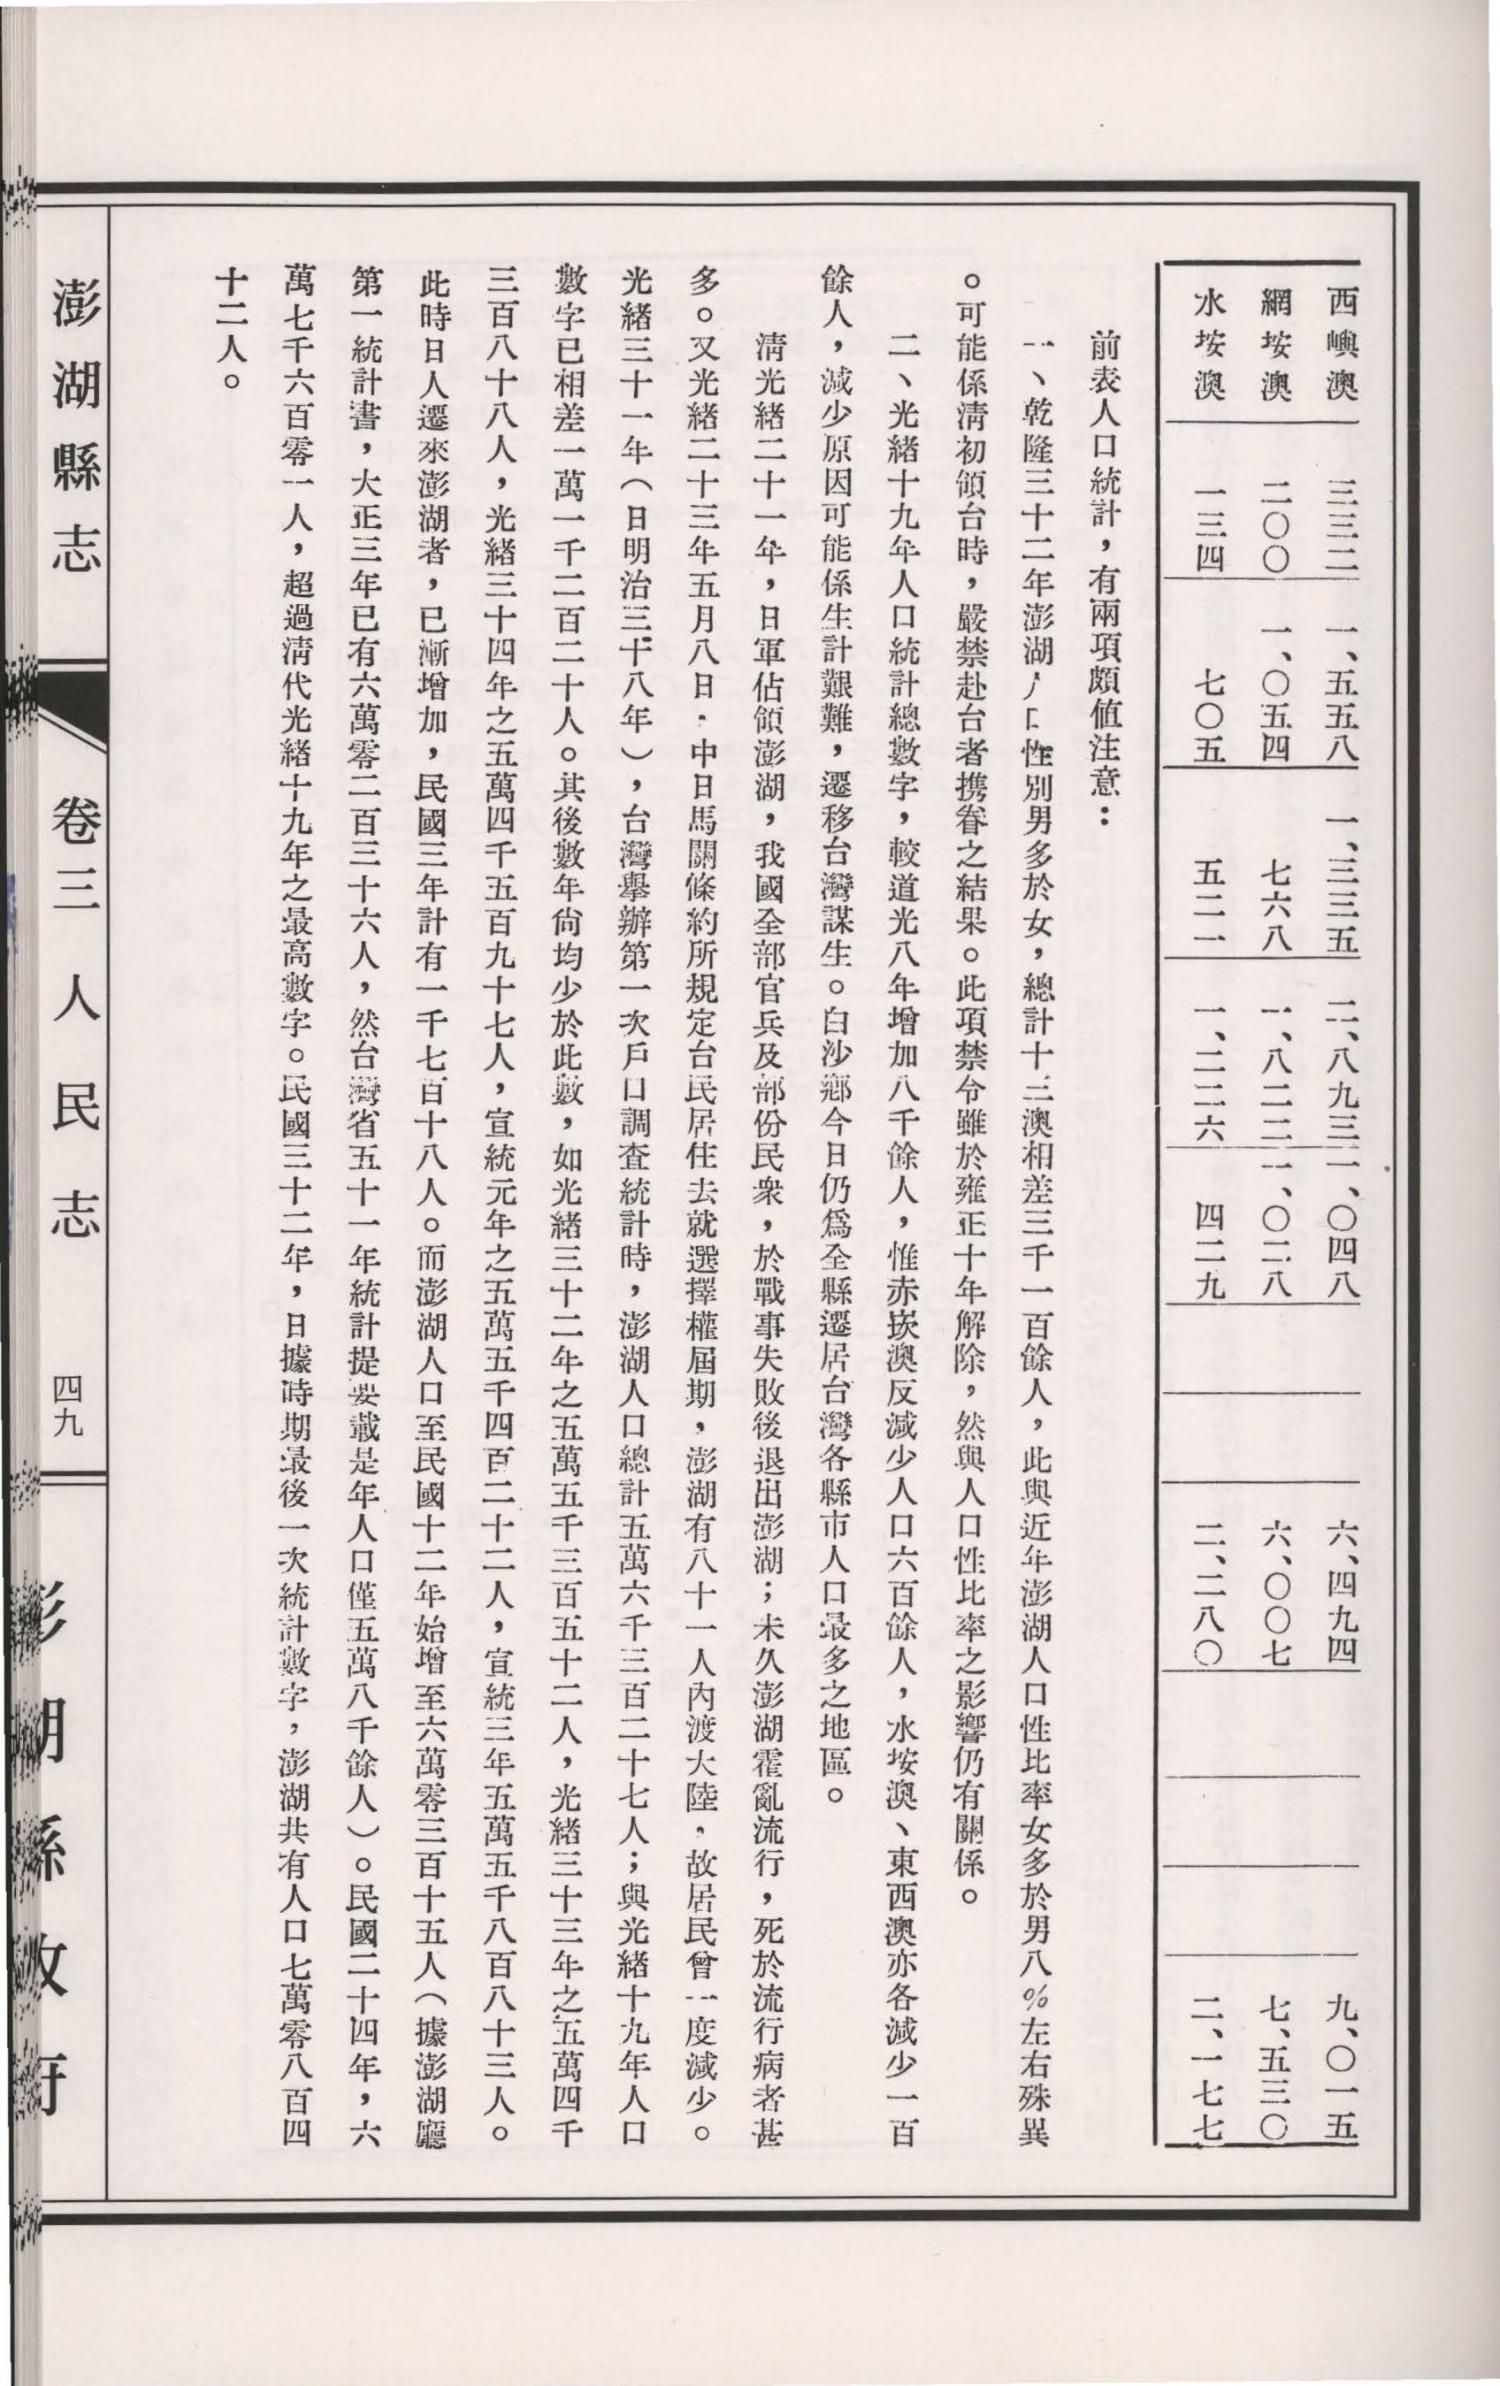 西嶼澳 三三二 一、五五八 一、三三五 二、八九三 一、〇四八 六、四九四 九、〇一五
網垵澳 二〇〇 一、〇五四 七六八 一、八二二 一、〇二八 六、〇〇七 七、五三〇
水垵澳 一三四 七〇五 五二一 一、二二六 四二九 二、二八〇 二、一七七
前表人口統計，有兩項頗值注意：
一、乾隆三十二年澎湖人口性別男多於女，總計十三澳相差三千一百餘人，此與近年澎湖人口性比率女多於男八％左右殊異
。可能係清初領台時，嚴禁赴台者携眷之結果。此項禁令雖於雍正十年解除，然與人口性比率之影響仍有關係。
二、光緒十九年人口統計總數字，較道光八年增加八千餘人，惟赤崁澳反減少人口六百餘人，水垵澳、東西澳亦各減少一百
餘人，減少原因可能係生計艱難，遷移台灣謀生。白沙鄉今日仍爲全縣遷居台灣各縣市人口最多之地區。
清光緒二十一年，日軍佔領澎湖，我國全部官兵及部份民衆，於戰事失敗後退出澎湖；未久澎湖霍亂流行，死於流行病者甚
多。又光緒二十三年五月八日．中日馬關條約所規定台民居住去就選擇權屆期，澎湖有八十一人內渡大陸，故居民曾一度減少。
光緒三十一年（日明治三十八年），台灣舉辦第一次戶口調查統計時，澎湖人口總計五萬六千三百二十七人；與光緒十九年人口
數字已相差一萬一千二百二十人。其後數年尙均少於此數，如光緒三十二年之五萬五千三百五十二人，光緒三十三年之五萬四千
三百八十八人，光緒三十四年之五萬四千五百九十七人，宣統元年之五萬五千四百二十二人，宣統三年五萬五千八百八十三人。
此時日人遷來澎湖者，已漸增加，民國三年計有一千七百十八人。而澎湖人口至民國十二年始增至六萬零三百十五人（據澎湖廳
第一統計書，大正三年已有六萬零二百三十六人，然台灣省五十一年統計提要載是年人口僅五萬八千餘人）。民國二十四年，六
萬七千六百零一人，超過清代光緒十九年之最高數字。民國三十二年，日據時期最後一次統計數字，澎湖共有人口七萬零八百四
十二人。
澎湖縣志 卷三人民志 四九 澎湖縣政府